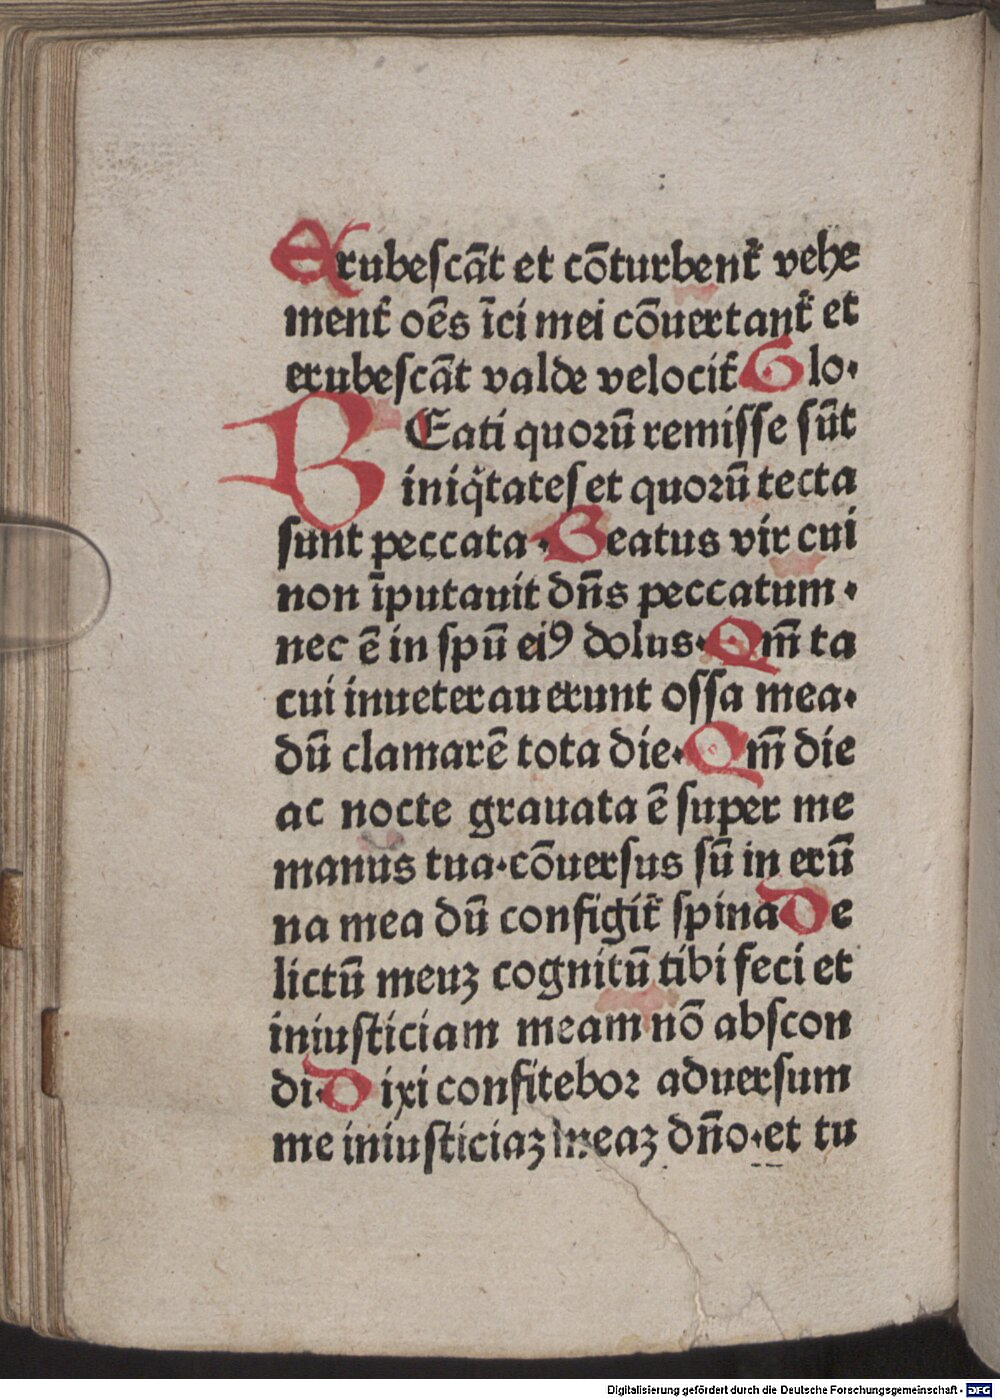 Erubescāt et cōturbent᷑ vehe
ment᷑ oēs īci mei cōuertant᷑ et
erubescāt valde velocit᷑ Glo·
BEati quoꝝū remisse sūt
iniq̇tates et quorū tecta
sunt peccata· Beatus vir cui
non īputauit dn̄s peccatum·
nec ē in spū eiꝰ dolus· Qm̄ ta
cui inueterauerunt ossa mea·
dū clamarē tota die· Qm̄ die
ac nocte grauata ē super me
manus tua·cōuersus sū in erū
na mea dū configit᷑ spina De
lictū meuʒ cognitū tibi feci et
iniusticiam meam nō abscon
di· Dixi confitebor aduersum
me iniusticiaʒ meaʒ dn̄o·et tu
Digitalisierung gefördert durch die Deutsche Forschungsgemeinschaft - DFG